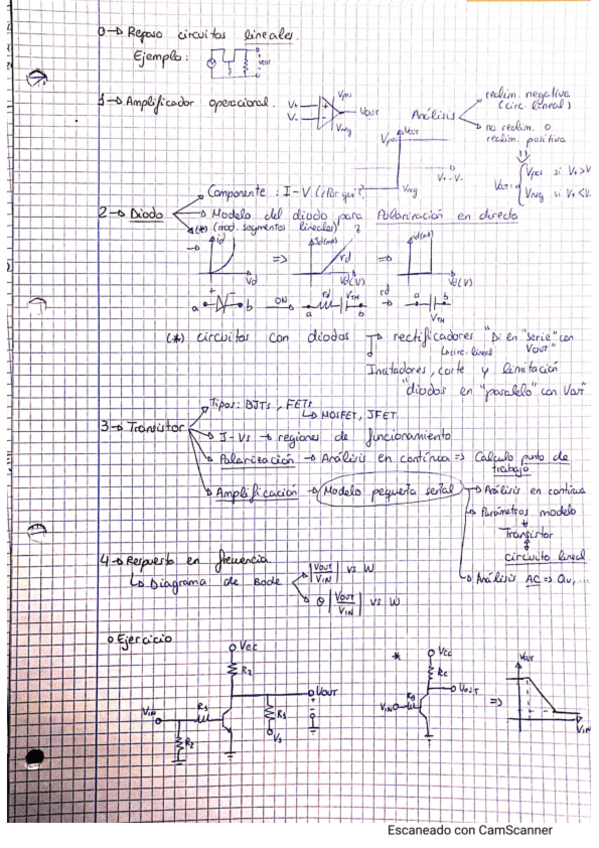 0→ Repaso circuitos lineales.
Ejemplo:
Vout
1→ Amplificador operacional.
V+
V-
Vpos
Vneg
Vout
Análisis
realim. negativa
(circ. lineal)
no realim. o
realim. positiva
Vout
Vpos
V+ - V-
Vneg
Vout = { Vpos si V+ > V-
Vneg si V+ < V-
2→ Diodo
Componente: I-V (¿Por qué?)
Modelo del diodo para Polarización en directa
(*) (mod. segmentos lineales) ?
id
Vd
=>
id(mA)
rd
Vd(V)
=>
id(mA)
Vd(V)
a + b
ON
rd VTH
a b
rd
a b
VTH
(*) circuitos con diodos → rectificadores "Di en "serie" con
Vout"
↳ circ. lineal
limitadores, corte y limitación
"diodos en "paralelo" con Vout"
3→ Transistor
Tipos: BJTs, FETs
↳ MOSFET, JFET
I-Vs → regiones de funcionamiento
Polarización → Análisis en continua => Calculo punto de
trabajo
Amplificación → Modelo pequeña señal
Análisis en continua
Parámetros modelo
Transistor
circuito lineal
Análisis AC => av, ...
4→ Respuesta en frecuencia
↳ Diagrama de Bode
|Vout/Vin| vs W
θ |Vout/Vin| vs W
Ejercicio
Vcc
R2
Vout
Vin
R1
R2
R3
V1
*
Vcc
Rc
Vout
Vin
RB
=>
Vout
Vin
Escaneado con CamScanner